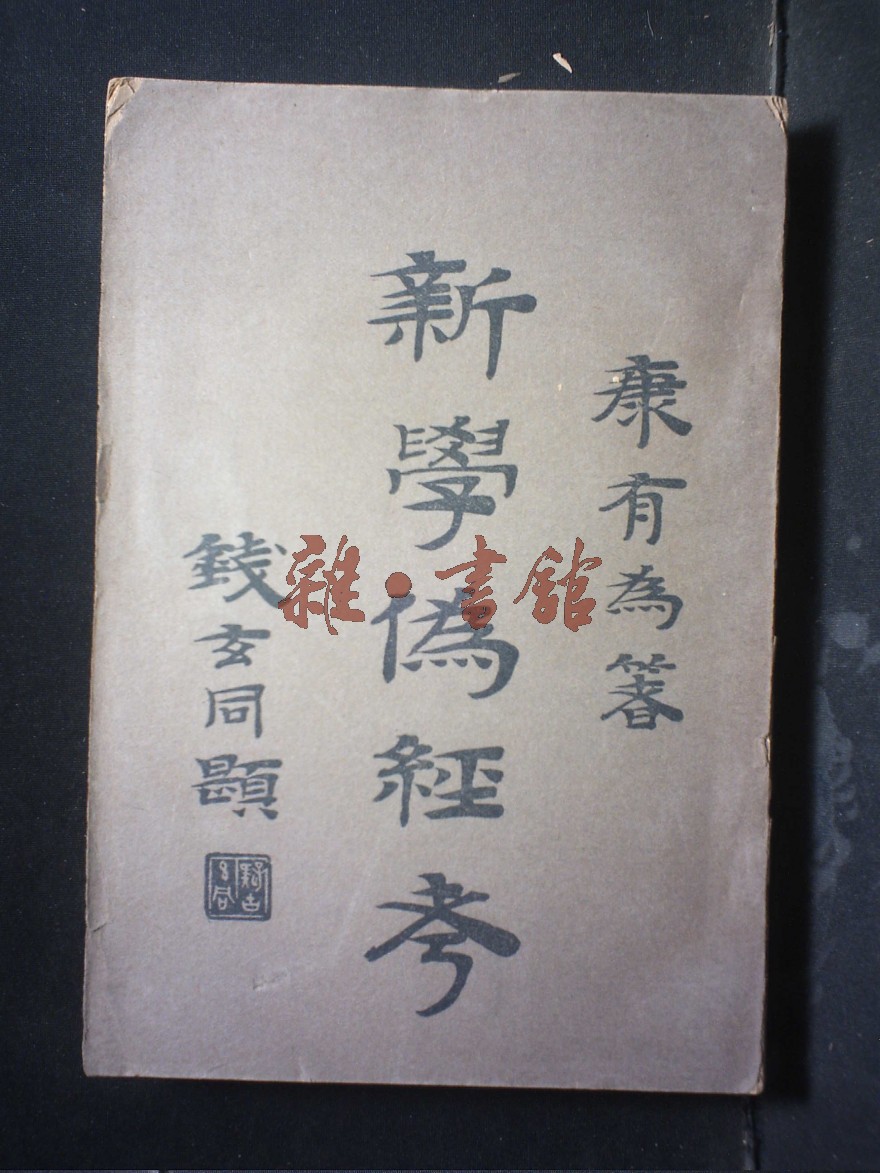 康有為箸
新學偽經考
錢玄同題
雜·書館